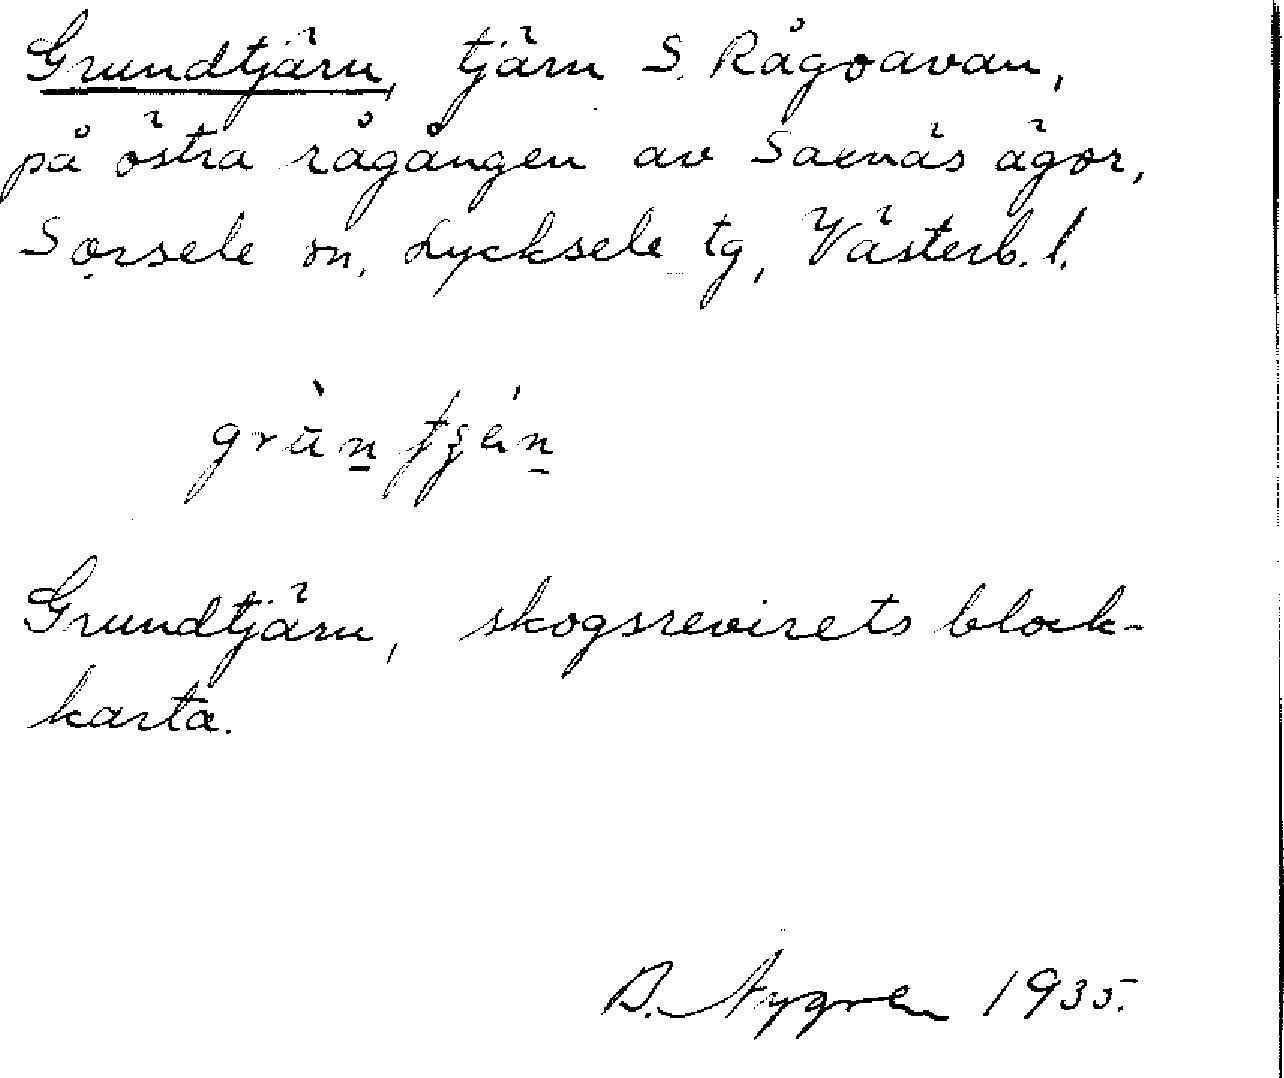 Grundtjärn, tjärn S. Rågoavan,
på östra rågången av Saxnäs ägor,
Sorsele sn, Lycksele tg, Västerb. l.
Grundtjärn, skogsrevirets block-
karta.
Nygren 1935.